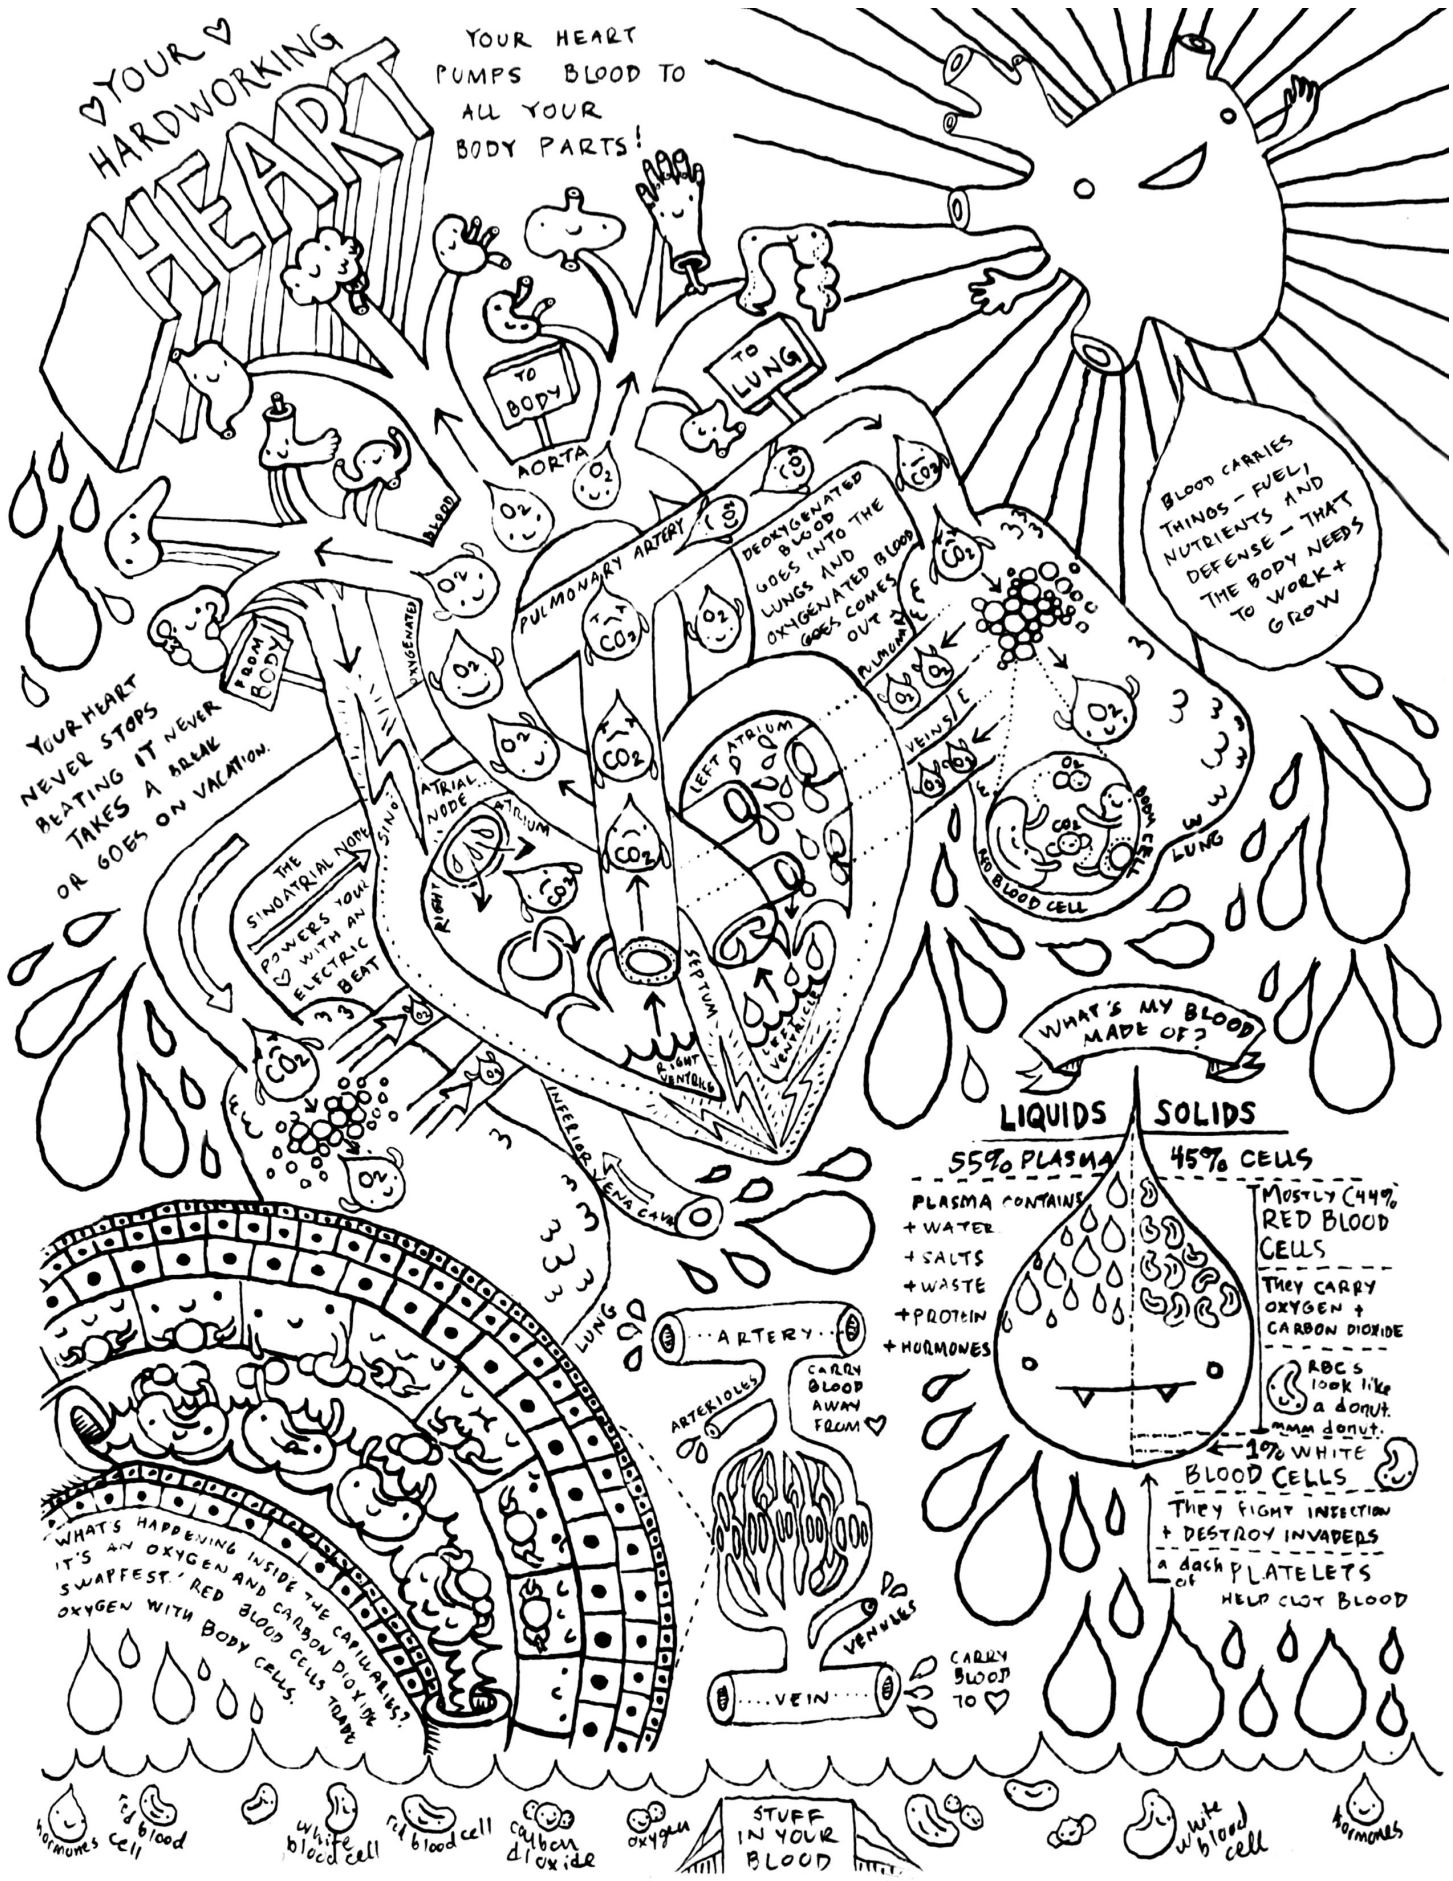 YOUR
HARDWORKING
HEART
YOUR HEART
PUMPS BLOOD TO
ALL YOUR
BODY PARTS!
TO
BODY
TO
LUNG
AORTA
O2
O2
CO2
CO2
CO2
BLOOD
OXYGENATED
O2
PULMONARY ARTERY
DEOXYGENATED
BLOOD
GOES INTO THE
LUNGS AND
OXYGENATED BLOOD
GOES COMES
OUT
BLOOD CARRIES
THINGS - FUEL,
NUTRIENTS AND
DEFENSE - THAT
THE BODY NEEDS
TO WORK +
GROW
FROM
BODY
CO2
CO2
O2
O2
O2
CO2
CO2
PULMONARY
VEINS
O2
O2
O2
O2
O2
O2
CO2
BODY CELL
RED BLOOD CELL
LUNG
YOUR HEART
NEVER STOPS
BEATING IT NEVER
TAKES A BREAK
OR GOES ON VACATION.
THE
SINOATRIAL NODE
POWERS YOUR
♡ WITH AN
ELECTRIC
BEAT
SINO
ATRIAL
NODE
RIGHT
ATRIUM
CO2
LEFT ATRIUM
SEPTUM
RIGHT
VENTRICLE
LEFT
VENTRICLE
CO2
O2
O2
O2
INFERIOR VENA CAVA
LUNG
WHAT'S MY BLOOD
MADE OF?
LIQUIDS SOLIDS
55% PLASMA
45% CELLS
PLASMA CONTAINS
+ WATER
+ SALTS
+ WASTE
+ PROTEIN
+ HORMONES
MOSTLY (44%
RED BLOOD
CELLS
THEY CARRY
OXYGEN +
CARBON DIOXIDE
RBC's
look like
a donut.
mmm donut.
1% WHITE
BLOOD CELLS
THEY FIGHT INFECTION
+ DESTROY INVADERS
a dash
of PLATELETS
HELP CLOT BLOOD
ARTERY
ARTERIOLES
CARRY
BLOOD
AWAY
FROM ♡
VENULES
VEIN
CARRY
BLOOD
TO ♡
WHAT'S HAPPENING INSIDE THE CAPILLARIES?
IT'S AN OXYGEN AND CARBON DIOXIDE
SWAPFEST! RED BLOOD CELLS TRADE
OXYGEN WITH BODY CELLS.
hormones
red blood
cell
white
blood cell
red blood cell
carbon
dioxide
oxygen
STUFF
IN YOUR
BLOOD
white
blood
cell
hormones